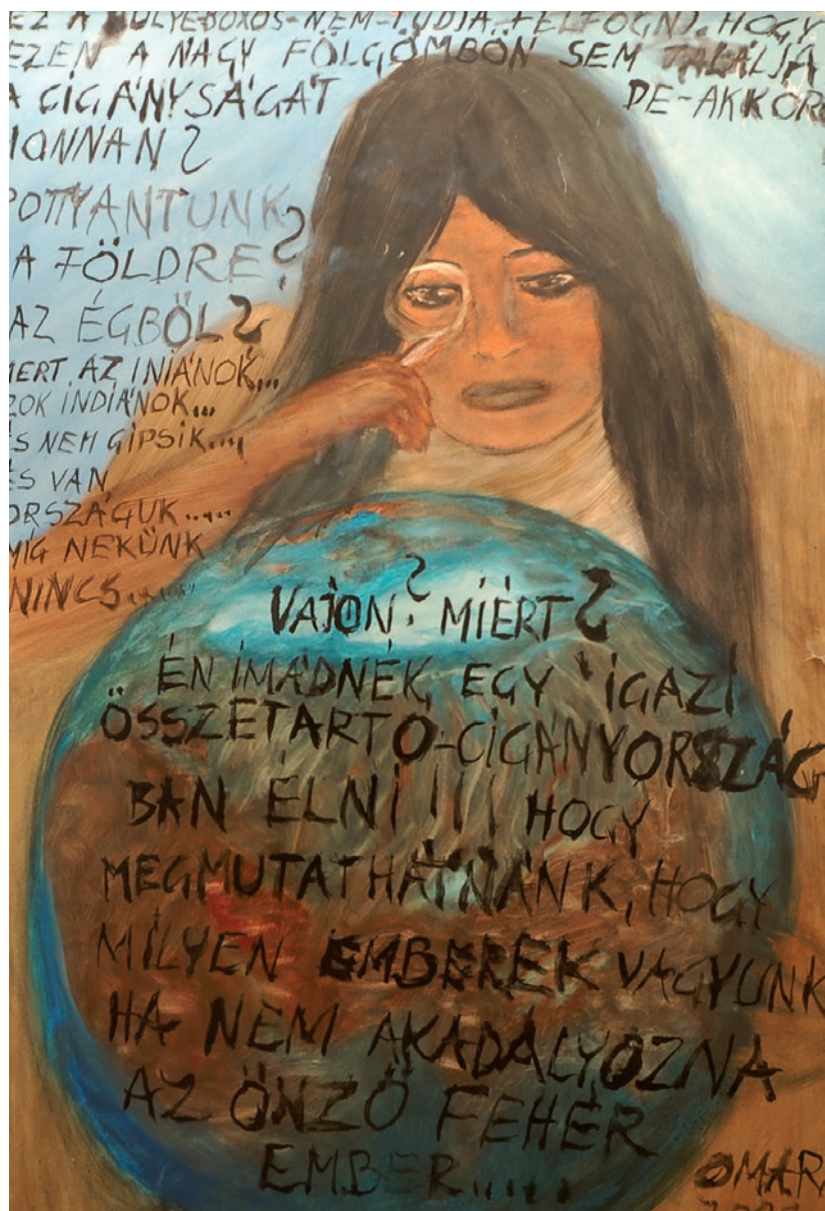 EZ A HÜLYE-BOXOS-NEM-TUDJA FELFOGNI. HOGY
EZEN A NAGY FÖLGÖMBÖN SEM TALÁLJA
A CIGÁNYSÁGÁT DE-AKKOR
HONNAN?
POTTYANTUNK
A FÖLDRE?
AZ ÉGBŐL?
MERT AZ INIÁNOK...
AZOK INDIÁNOK...
ÉS NEM GIPSIK....
ÉS VAN
ORSZÁGUK.....
MÍG NEKÜNK
NINCS.....
VAJON? MIÉRT?
ÉN IMÁDNÉK EGY IGAZI
ÖSSZETARTO-CIGÁNYORSZÁG
BAN ÉLNI!!! HOGY
MEGMUTATHATNÁNK, HOGY
MILYEN EMBEREK VAGYUNK
HA NEM AKADÁLYOZNA
AZ ÖNZŐ FEHÉR
EMBER.....
OMARA